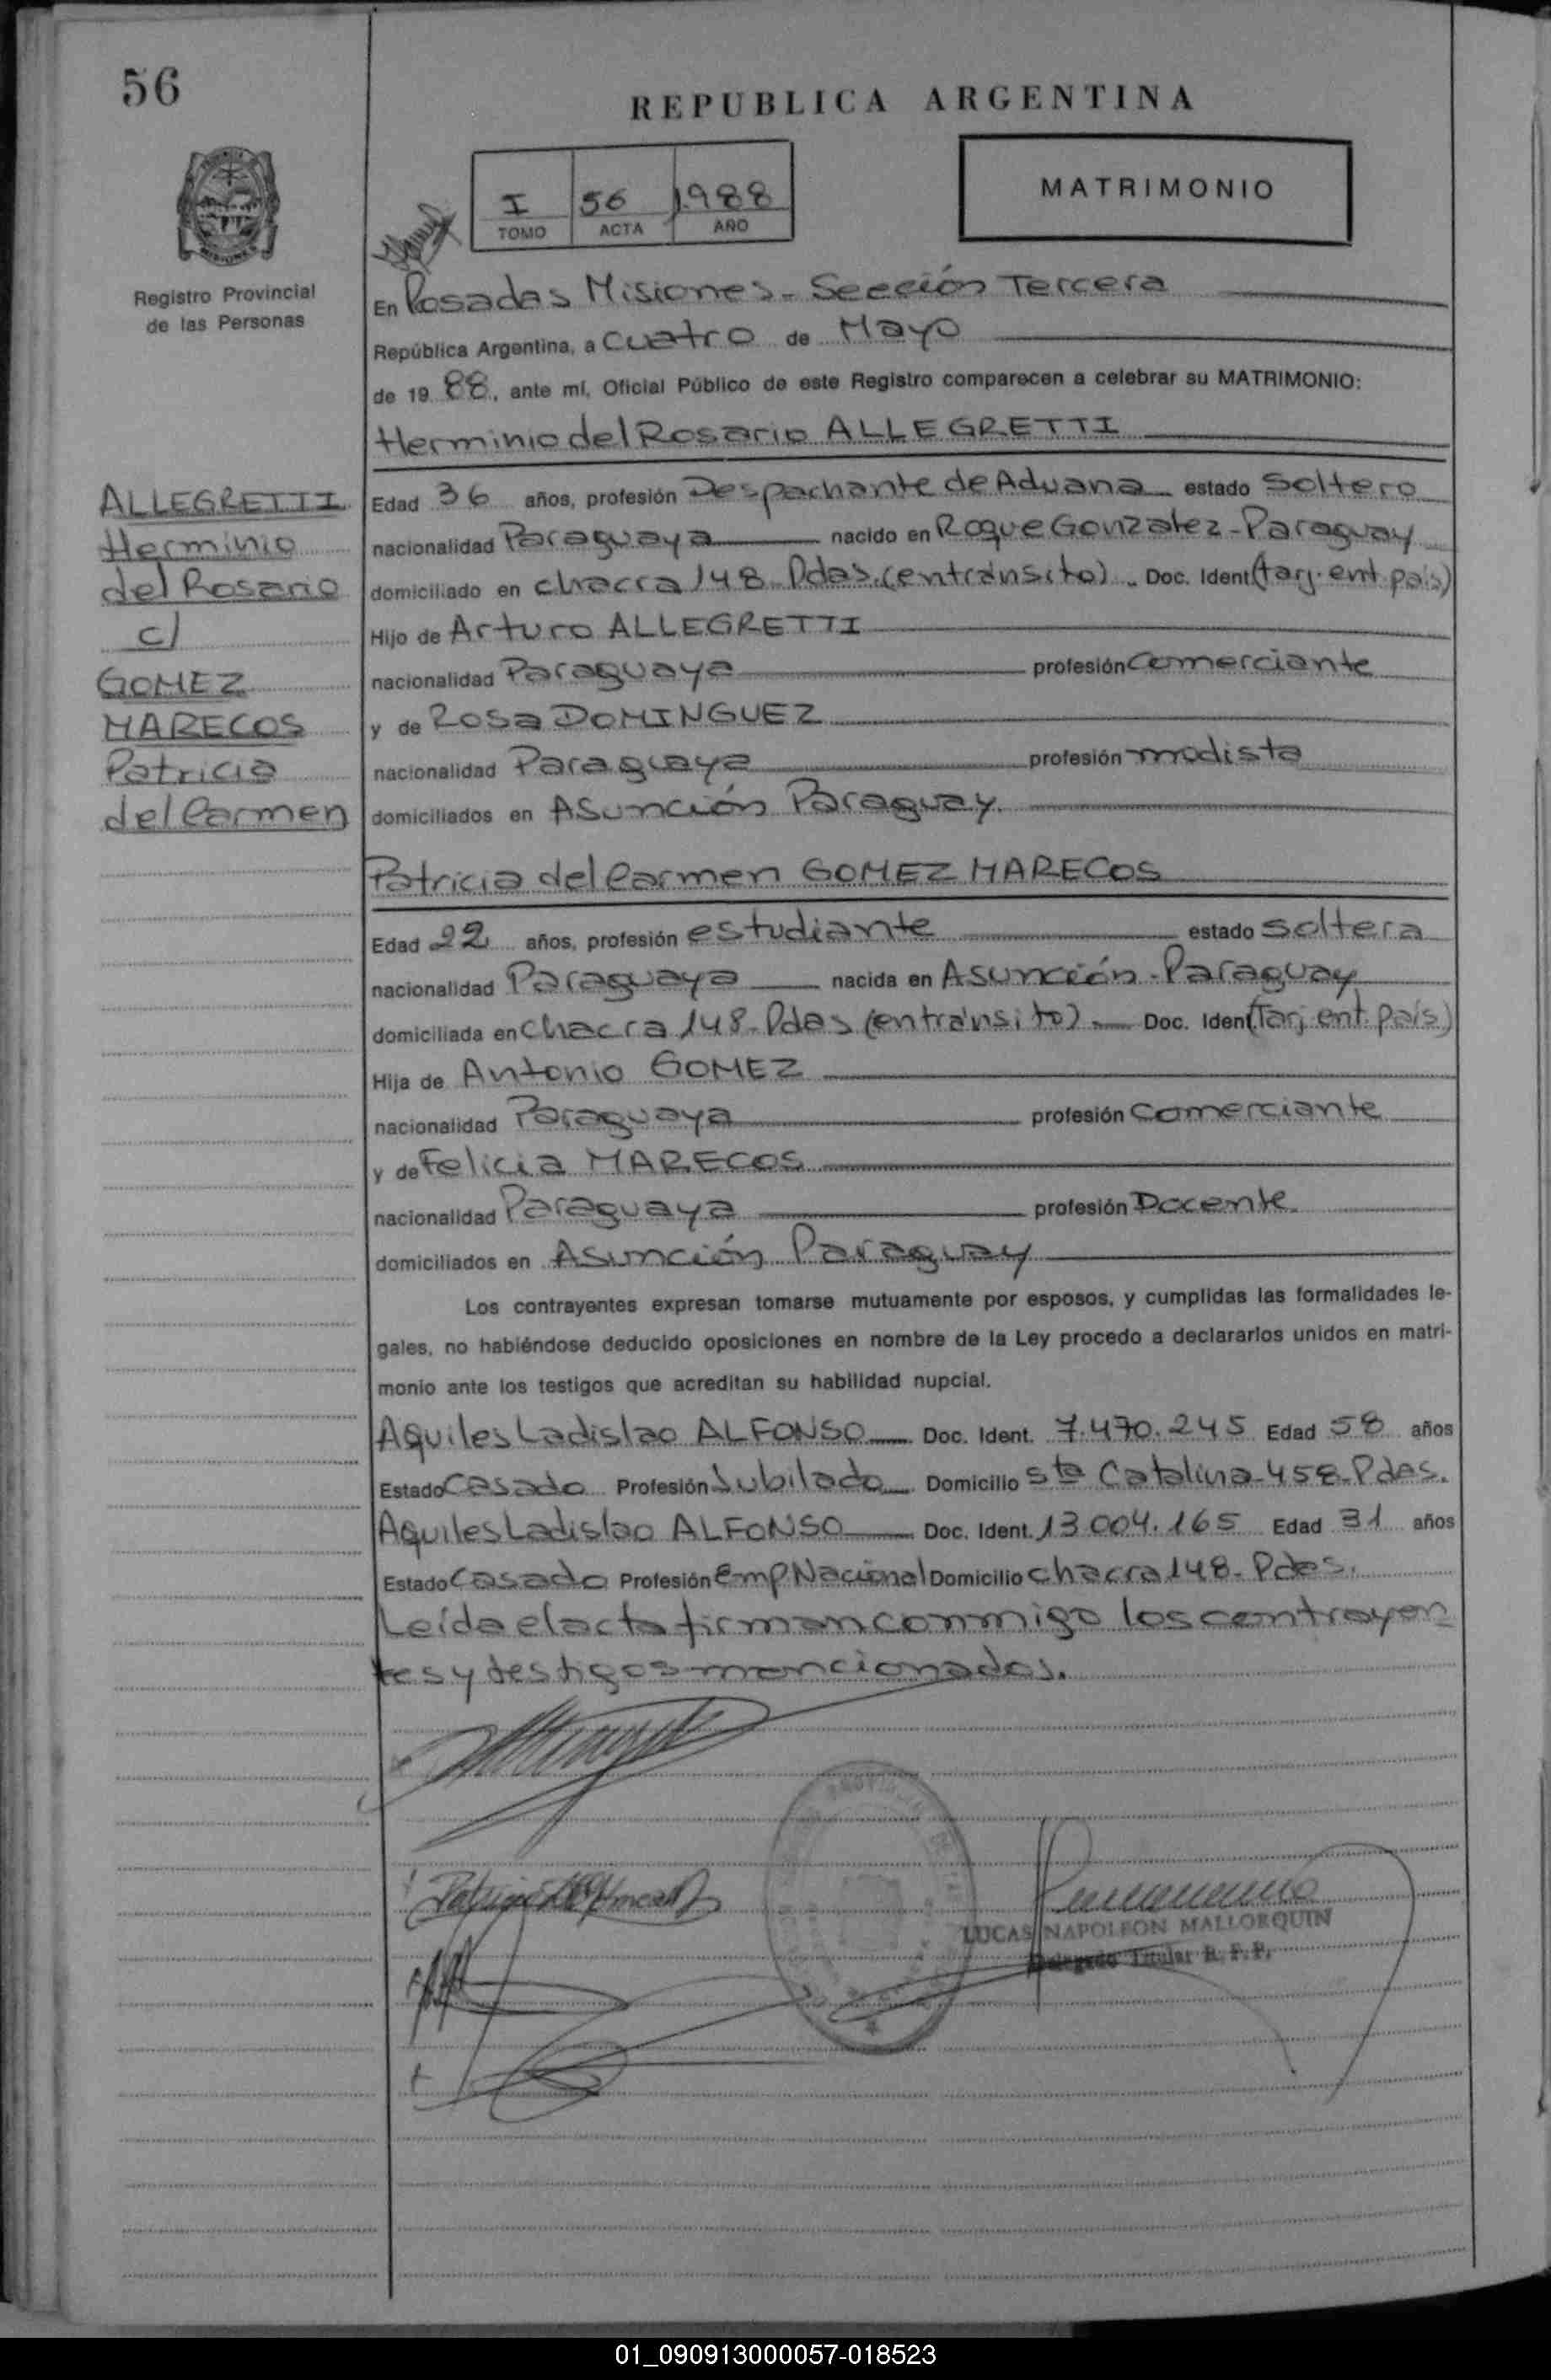 56
REPUBLICA ARGENTINA
I 56 1988
TOMO ACTA AÑO
MATRIMONIO
Registro Provincial
de las Personas
En Posadas Misiones - Sección Tercera
República Argentina, a cuatro de Mayo
de 19 88, ante mí, Oficial Público de este Registro comparecen a celebrar su MATRIMONIO:
Herminio del Rosario ALLEGRETTI
ALLEGRETTI
Herminio
del Rosario
c/
GOMEZ
MARECOS
Patricia
del Carmen
Edad 36 años, profesión Despachante de Aduana estado Soltero
nacionalidad Paraguaya nacido en Roque Gonzalez - Paraguay
domiciliado en chacra 148 - Pdas. (en tránsito) - Doc. Ident (tarj. ent. país)
Hijo de Arturo ALLEGRETTI
nacionalidad Paraguaya profesión comerciante
y de Rosa DOMINGUEZ
nacionalidad Paraguaya profesión modista
domiciliados en Asunción Paraguay.
Patricia del Carmen GOMEZ MARECOS
Edad 22 años, profesión estudiante estado Soltera
nacionalidad Paraguaya nacida en Asunción - Paraguay
domiciliada en chacra 148 - Pdas (en tránsito) - Doc. Ident (Tarj. ent. país)
Hija de Antonio GOMEZ
nacionalidad Paraguaya profesión Comerciante
y de Felicia MARECOS
nacionalidad Paraguaya profesión Docente
domiciliados en Asunción Paraguay
Los contrayentes expresan tomarse mutuamente por esposos, y cumplidas las formalidades le-
gales, no habiéndose deducido oposiciones en nombre de la Ley procedo a declararlos unidos en matri-
monio ante los testigos que acreditan su habilidad nupcial.
Aquiles Ladislao ALFONSO Doc. Ident. 7.470.245 Edad 58 años
Estado Casado Profesión Jubilado Domicilio Sta Catalina - 458 - Pdas.
Aquiles Ladislao ALFONSO Doc. Ident. 13.004.165 Edad 31 años
Estado Casado Profesión Emp. Nacional Domicilio chacra 148 - Pdas.
Leída el acta firman conmigo los contrayen
tes y testigos mencionados.
LUCAS NAPOLEON MALLORQUIN
Delegado Titular R. P. P.
01_090913000057-018523